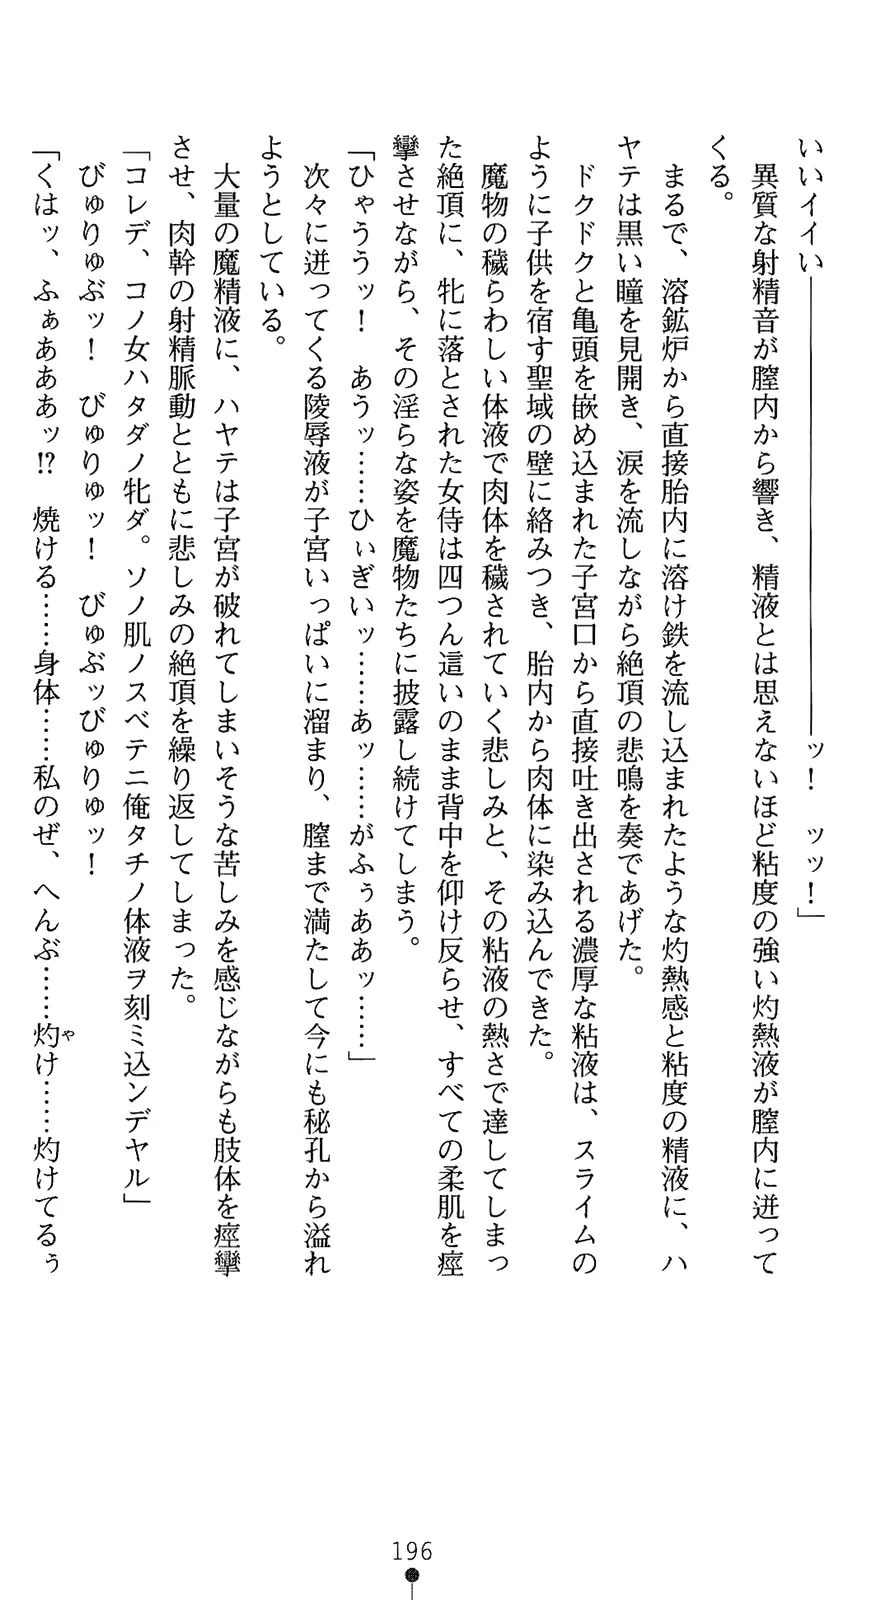 いいイイい――――――――――――――――ッ！　ッッ！」
　異質な射精音が膣内から響き、精液とは思えないほど粘度の強い灼熱液が膣内に迸って
くる。
　まるで、溶鉱炉から直接胎内に溶け鉄を流し込まれたような灼熱感と粘度の精液に、ハ
ヤテは黒い瞳を見開き、涙を流しながら絶頂の悲鳴を奏であげた。
　ドクドクと亀頭を嵌め込まれた子宮口から直接吐き出される濃厚な粘液は、スライムの
ように子供を宿す聖域の壁に絡みつき、胎内から肉体に染み込んできた。
　魔物の穢らわしい体液で肉体を穢されていく悲しみと、その粘液の熱さで達してしまっ
た絶頂に、牝に落とされた女侍は四つん這いのまま背中を仰け反らせ、すべての柔肌を痙
攣させながら、その淫らな姿を魔物たちに披露し続けてしまう。
「ひゃううッ！　あうッ……ひぃぎいッ……あッ……がふぅああッ……」
　次々に迸ってくる陵辱液が子宮いっぱいに溜まり、膣まで満たして今にも秘孔から溢れ
ようとしている。
　大量の魔精液に、ハヤテは子宮が破れてしまいそうな苦しみを感じながらも肢体を痙攣
させ、肉幹の射精脈動とともに悲しみの絶頂を繰り返してしまった。
「コレデ、コノ女ハタダノ牝ダ。ソノ肌ノスベテニ俺タチノ体液ヲ刻ミ込ンデヤル」
　びゅりゅぶッ！　びゅりゅッ！　びゅぶッびゅりゅッ！
「くはッ、ふぁあああッ!?　焼ける……身体……私のぜ、へんぶ……灼け……灼けてるぅ
や
196